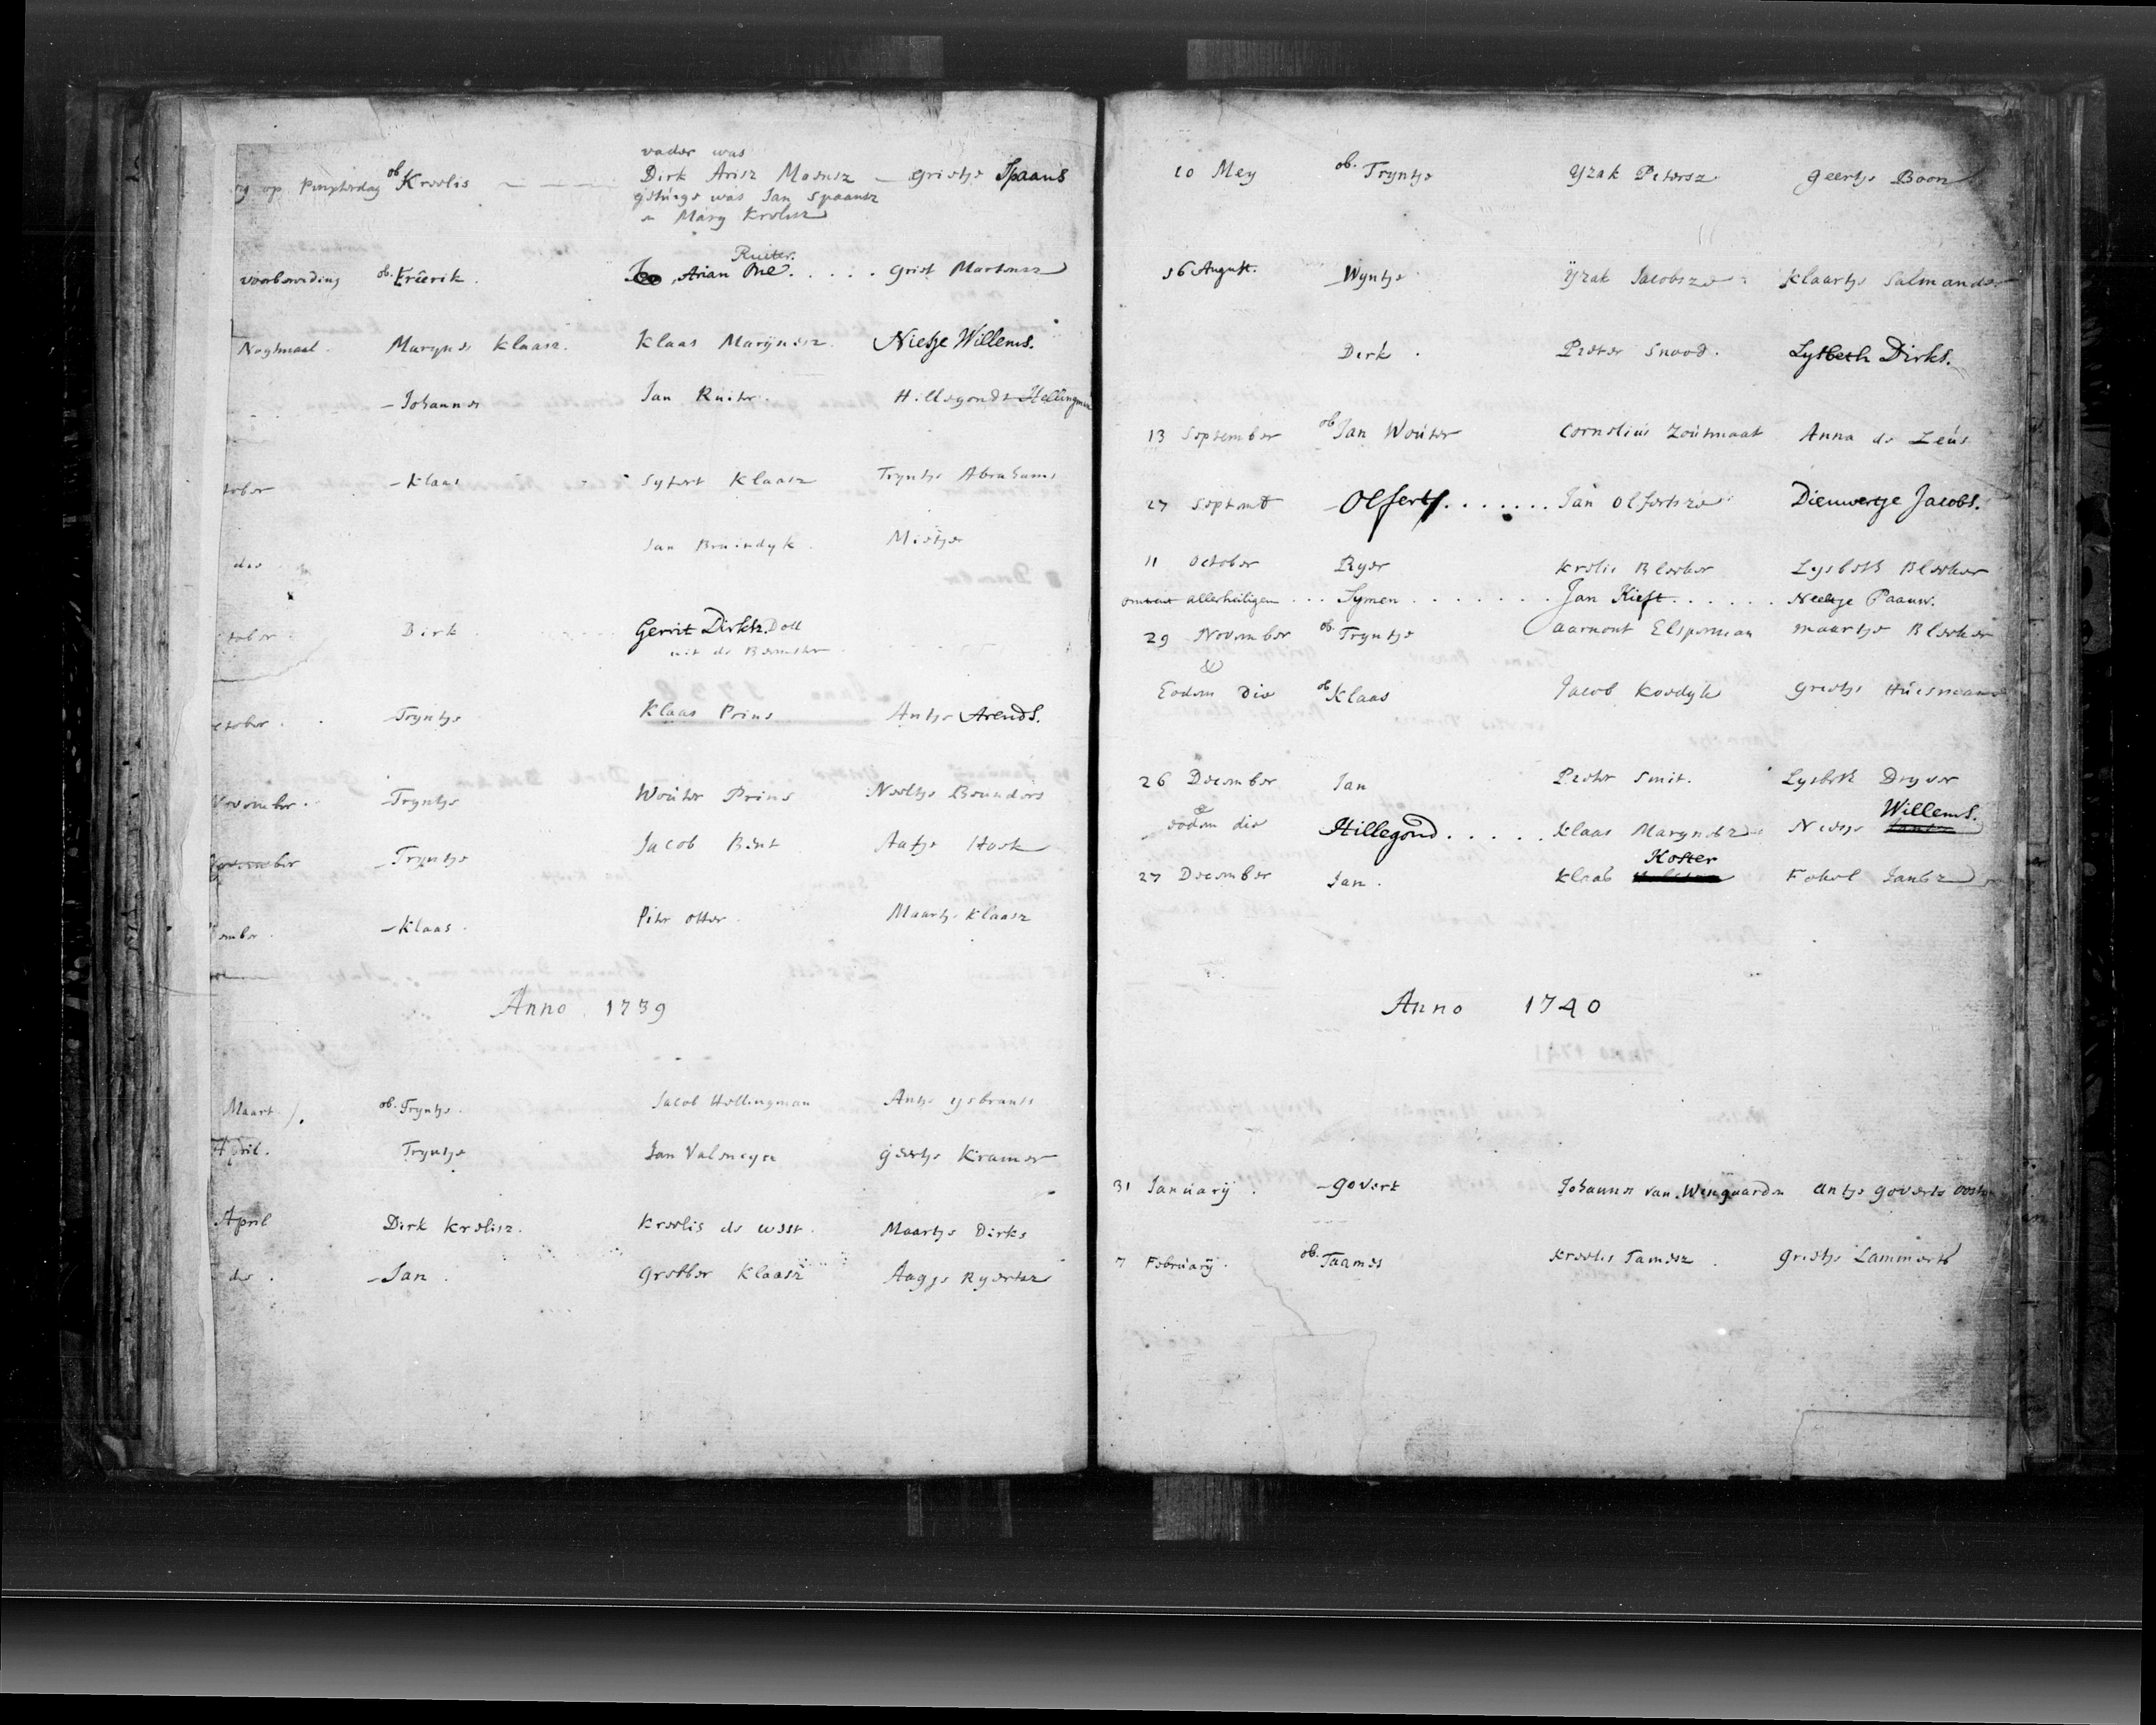 vader was
op Pinxterdag ob Kreelis Dirk Arisz Moensz Grietje Spaans
getuige was Jan Spaansz
en Mary Kreelisz
Ruiter.
voorbereiding ob. Freerik. Arian One..... Griet Martensz
Nagtmaal. Marynes Klaasz. Klaas Marÿnesz. Nietje Willems.
Johannes Jan Ruiter. Hillegonde Hellingman
tober Klaas Sijvert Klaasz Tryntje Abrahams
die Jan Bruindyk. Mietje
tober Dirk Gerrit Dirksz. Doll
uit de Beemster
ctober. Tryntje Klaas Prins Antje Arends.
November. Tryntje Wouter Prins Neeltje Beunders
November Tryntje Jacob Bent Aafje Hoek
ember. Klaas. Piter Otter. Maartje Klaasz
Anno 1739
Maart ob. Tryntje. Jacob Hellingman Antje Ysbrants
April. Tryntje Jan Valmeyer Geertje Kramer
April Dirk Kreelisz. Kreelis de West. Maartje Dirks
die. Jan. Gretter Klaasz Aagje Ryertsz
10 Mey ob. Tryntje Yzak Petersz Geertje Boon
16 August. Wyntje Ÿzak Jacobsze Klaartje Salmander
Dirk. Pieter Snood. Lysbeth Dirks.
13 September ob Jan Wouter Cornelius Zoutmaat Anna de Leus
27 Septemb Olfert....... Jan Olfertsze Dieuwertje Jacobs.
11 October Ryer Kreelis Bleeker Lysbeth Bleeker
allerheiligen... Symen........ Jan Kieft...... Neeltje Paauw.
29 November ob. Tryntje Aarnout Elsperman Maartje Bleeker
Eodem Die ob Klaas Jacob Koedyk Grietje Huisman
26 December Jan Pieter Smit. Lysbeth Dryver
Willems.
eodem die Hillegond..... Klaas Marynesz Nietje Jansz
Koster
27 December Jan. Klaas Fokel Jansz
Anno 1740
31 Januarÿ. Govert Johannes van Wingaarden Antje Goverts
7 Februarÿ. ob. Taames Kreelis Tamesz. Grietje Lammerts